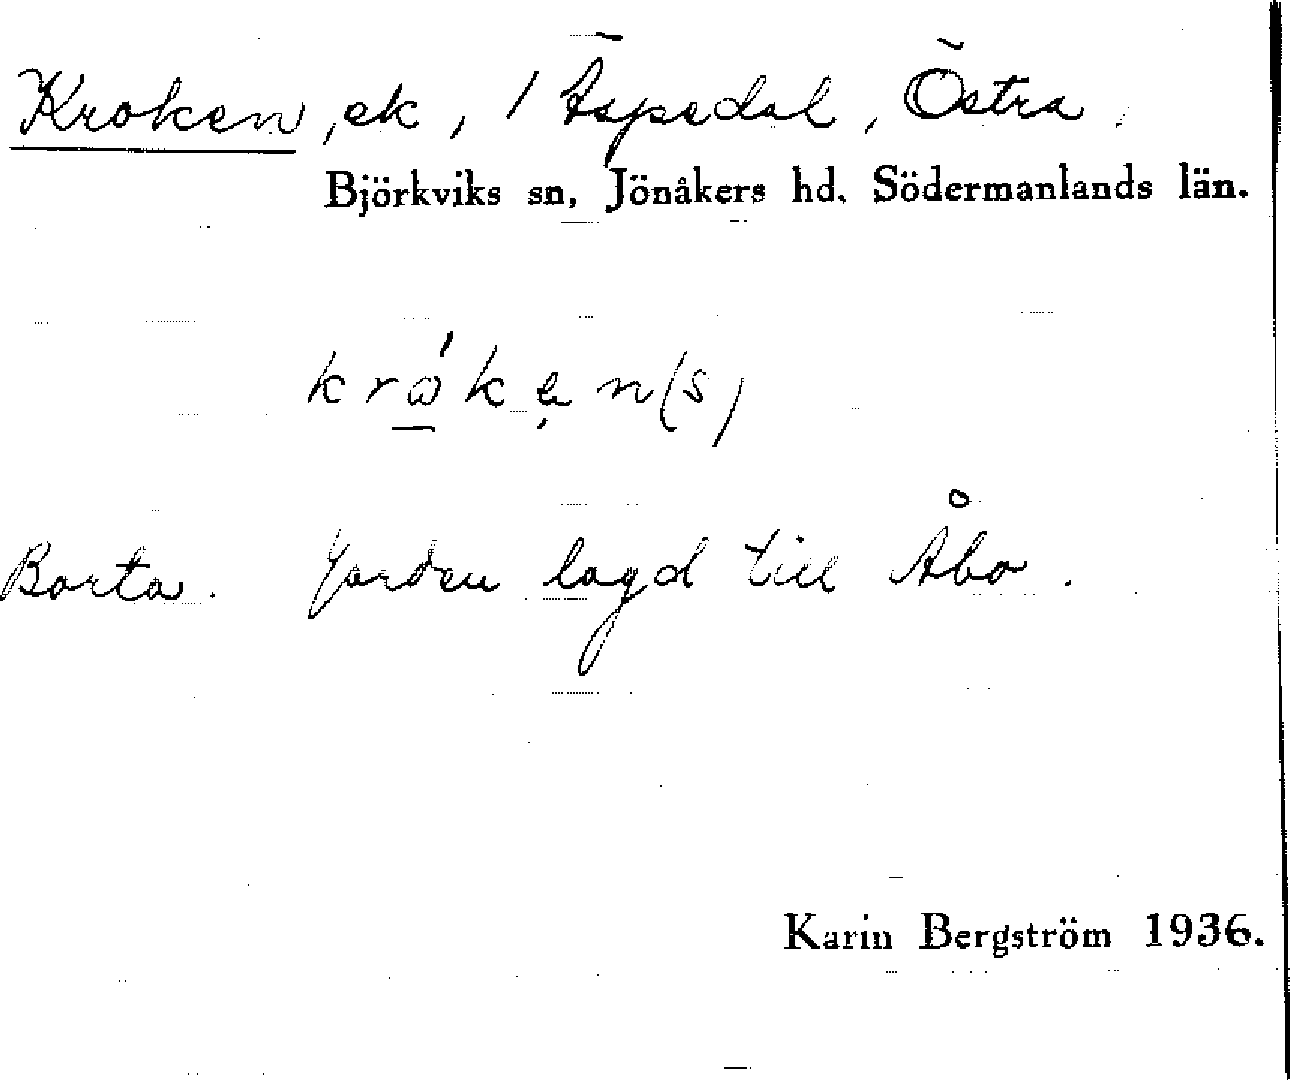 Kroken, ek, / Äspedal, Östra,
Björkviks sn, Jönåkers hd. Södermanlands län.
kró̲kẹn(s)
Borta. Jorden lagd till Åbo.
Karin Bergström 1936.